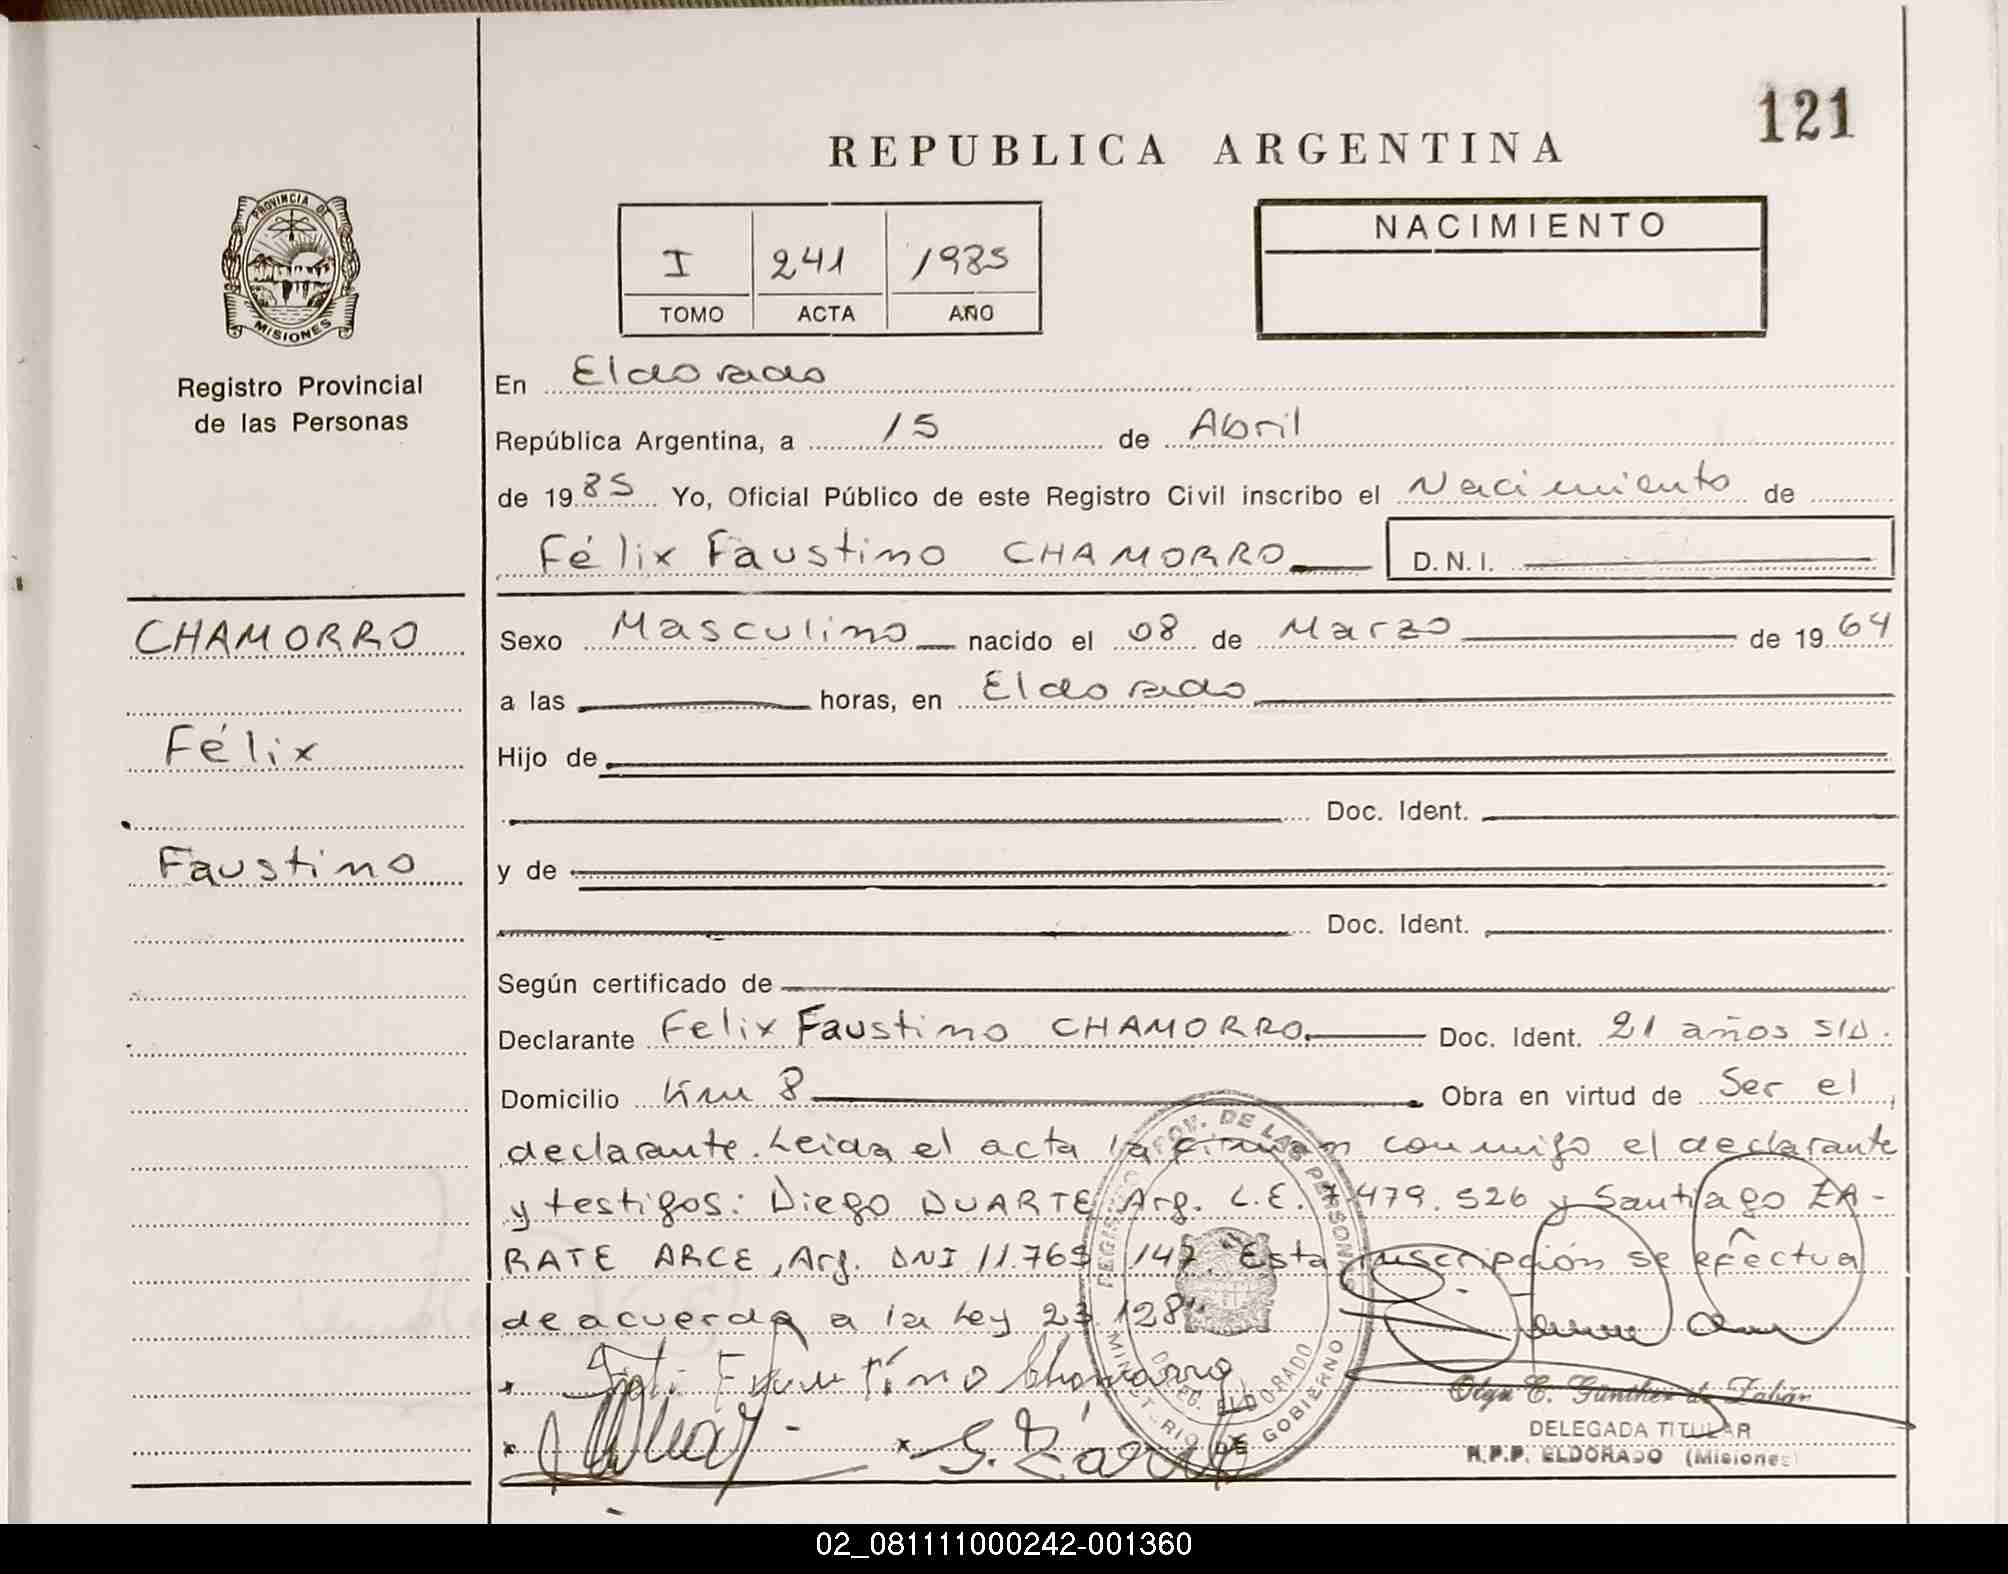 121
REPUBLICA ARGENTINA
PROVINCIA DE
MISIONES
Registro Provincial
de las Personas
I 241 1985
TOMO ACTA AÑO
NACIMIENTO
En Eldorado
República Argentina, a 15 de Abril
de 1985 Yo, Oficial Público de este Registro Civil inscribo el Nacimiento de
Félix Faustino CHAMORRO D.N.I.
CHAMORRO
Félix
Faustino
Sexo Masculino nacido el 08 de Marzo de 1964
a las horas, en Eldorado
Hijo de
Doc. Ident.
y de
Doc. Ident.
Según certificado de
Declarante Felix Faustino CHAMORRO Doc. Ident. 21 años S/D.
Domicilio Km 8 Obra en virtud de Ser el
declarante. Leida el acta la firman conmigo el declarante
y testigos: Diego DUARTE Arg. L.E. 7.479.526 y Santiago ZA-
RATE ARCE, Arg. DNI 11.765.147. "Esta inscripción se efectua
de acuerdo a la Ley 23.128"
Faustino Chamorro
S. Zárate
REGISTRO PROV. DE LAS PERSONAS
DELEG. ELDORADO
MINISTERIO DE GOBIERNO
Olga E. Günther de Fabián
DELEGADA TITULAR
R.P.P. ELDORADO (Misiones)
02_081111000242-001360